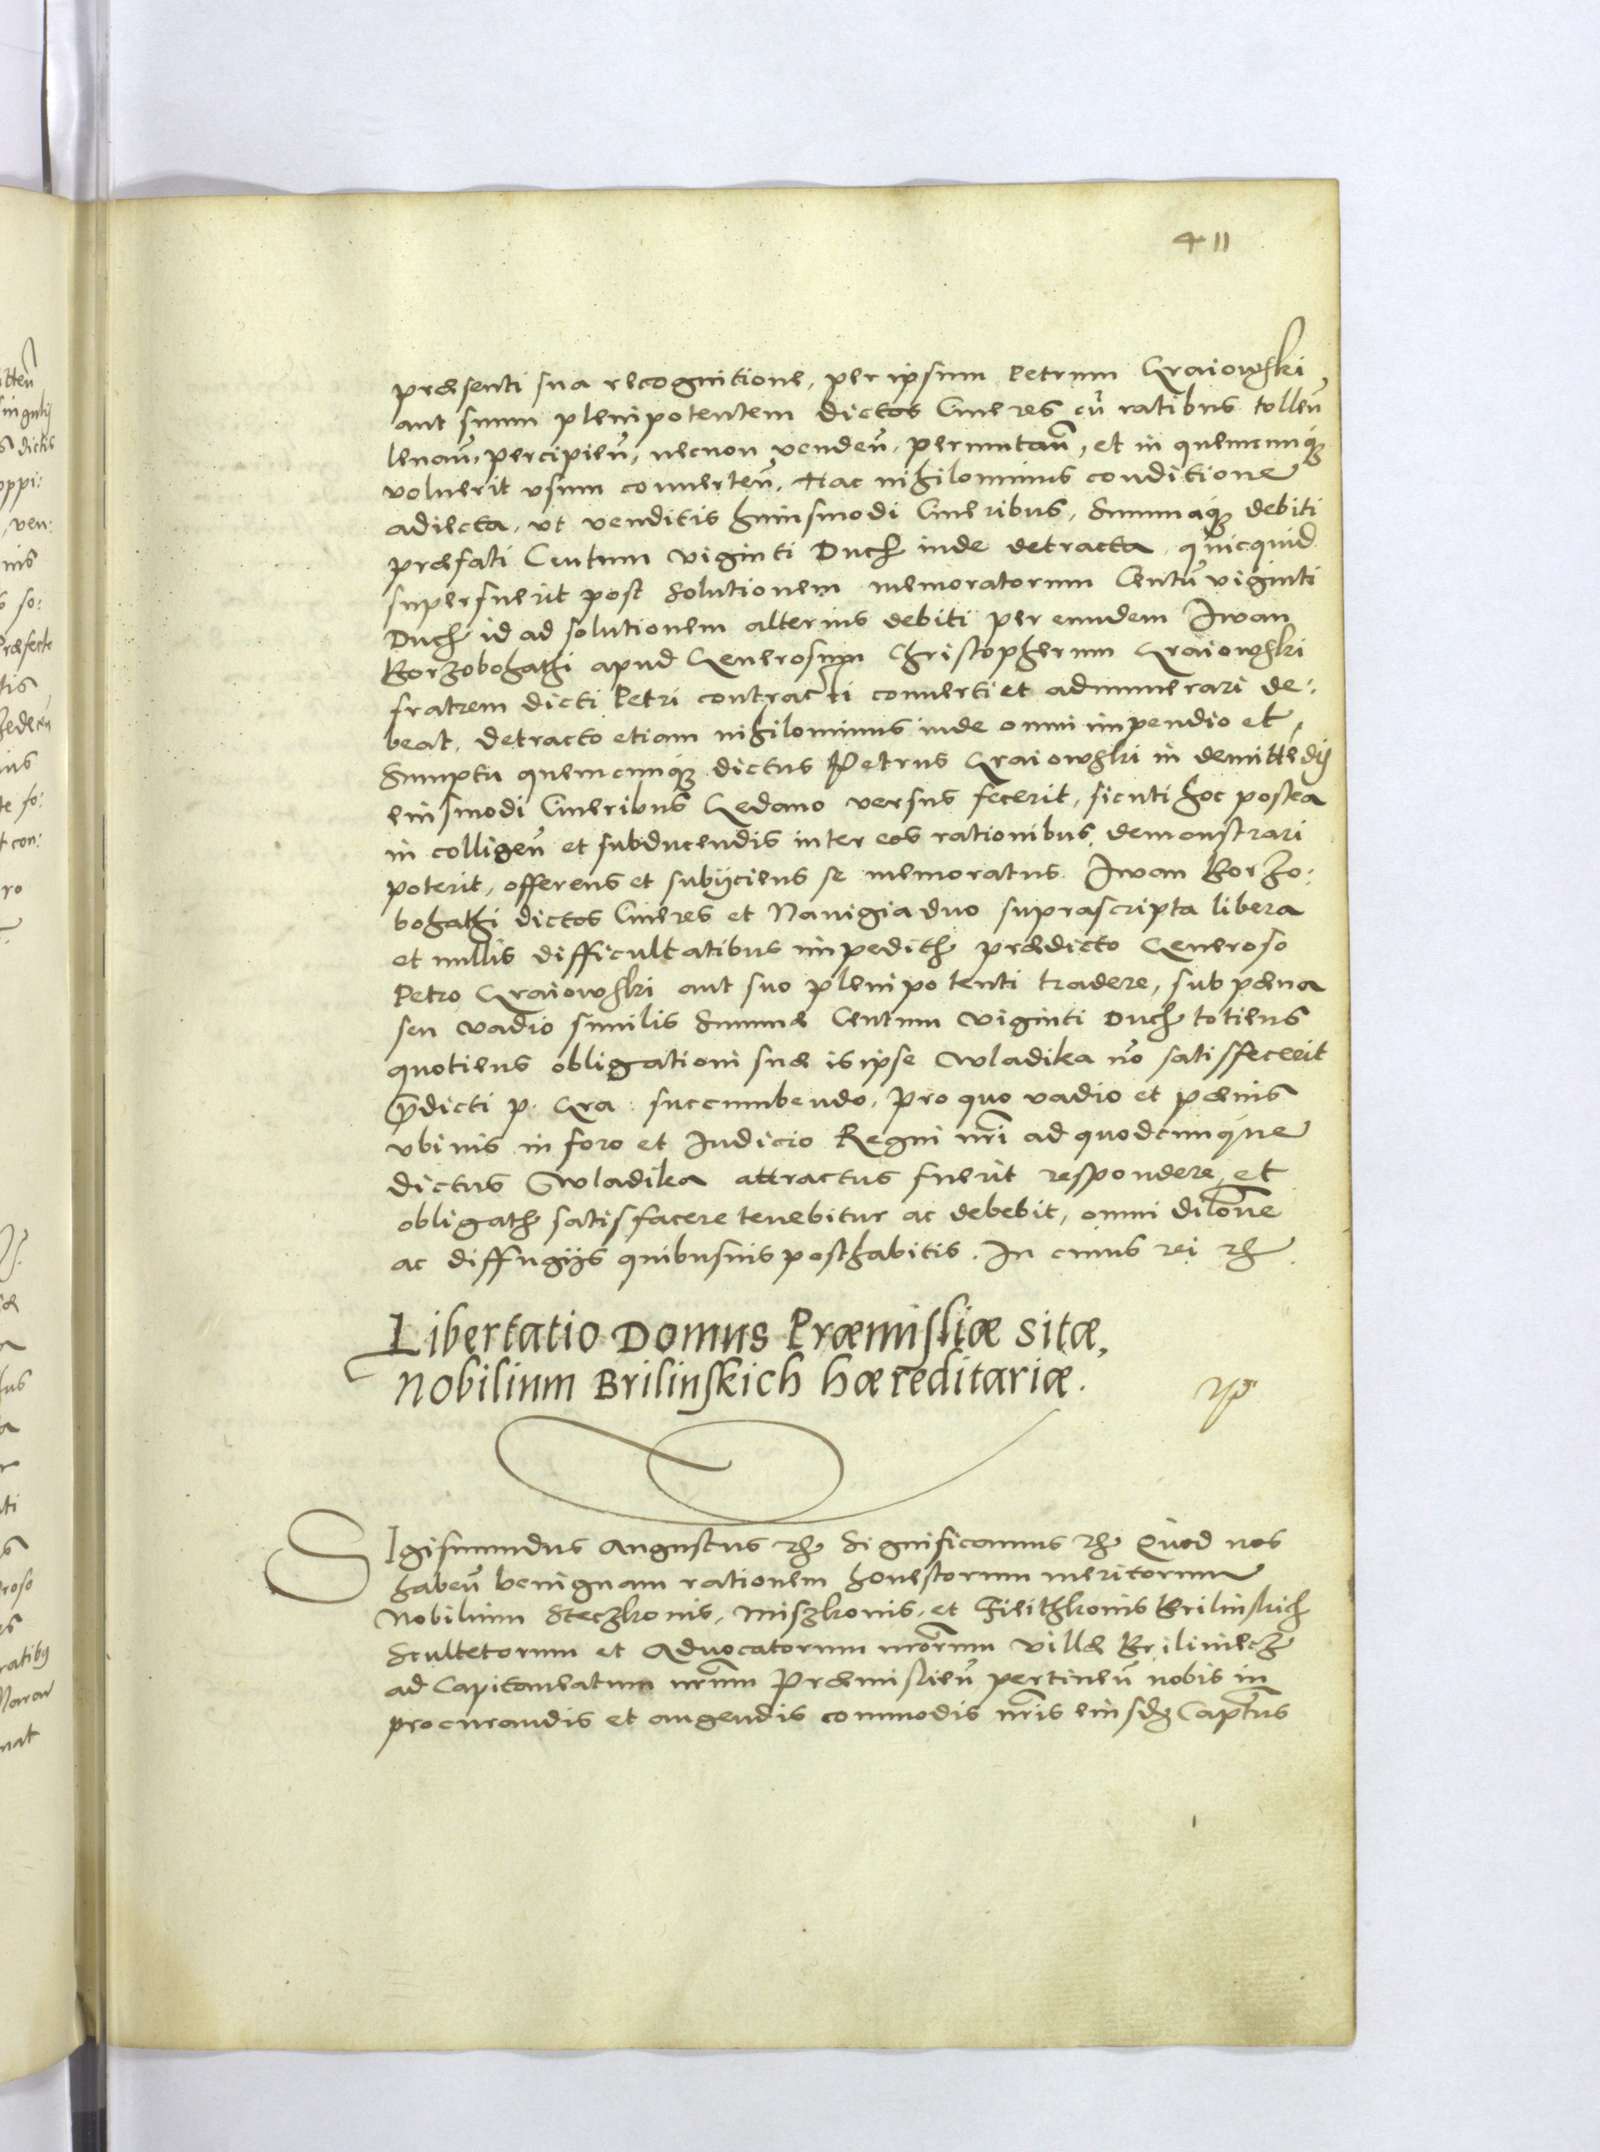 411
præsenti sua recognitione, per ipsum Petrum Craiowski
aut suum plenipotentem dictos Cineres cū ratibus tolleñ
leuañ, percipieñ, necnon vendeñ, permutañ, et in quemcunq₃
voluerit vsum conuerteñ. Hac nihilominus conditione
adiecta, vt venditis huiusmodi Cineribus, Summaq₃ debiti
præfati Centum viginti Duc₎ inde detracta, quicquid
superfuerit post solutionem memoratorum Centū viginti
Duc₎ id ad solutionem alterius debiti per eundem Iwan
Borzobohathi apud Generosum Christopherum Craiowski
fratrem dicti Petri contracti conuerti et adnumerari de:
beat, detracto etiam nihilominus inde omni impendio et
Sumptu quemcunq₃ dictus Petrus Craiowski in demittēdis
eiusmodi Cineribus Gedano versus fecerit, sicuti hoc postea
in colligeñ et subducendis inter eos rationibus demonstrari
poterit, offerens et subiiciens se memoratus Iwan Borzo:
bohathi dictos Cineres et Nauigia duo suprascripta libera
et nullis difficultatibus impedit₎ prædicto Generoso
Petro Craiowski aut suo plenipotenti tradere, sub pæna
seu vadio similis Summæ Centum viginti Duc₎ totiens
quotiens obligationi suæ is ipse Wladika nō satisfecerit
p̄dicti p. Cra: succumbendo. Pro quo vadio et pænis
vbiuis in foro et Iudicio Regni nr̄i ad quodcunque
dictus Wladika attractus fuerit respondere, et
obligat₎ satisfacere tenebitur ac debebit, omni dilōne
ac diffugiis quibusuis posthabitis. In cuius rei &c
Libertatio Domus Præmisliæ sitæ,
Nobilium Brilinskich hæreditariæ.
SIgismundus Augustus &c Significamus &c Quod nos
habeñ benignam rationem honestorum meritorum
Nobilium Steczkonis, Miszkonis, et Filithkonis Brilinskich
Scultetorum et Aduocatorum nrōrum villæ Brilincze
ad Capitaneatum nrūm Præmislieñ pertineñ nobis in
procurandis et augendis commodis nr̄is eiusd₃ Capt̄us